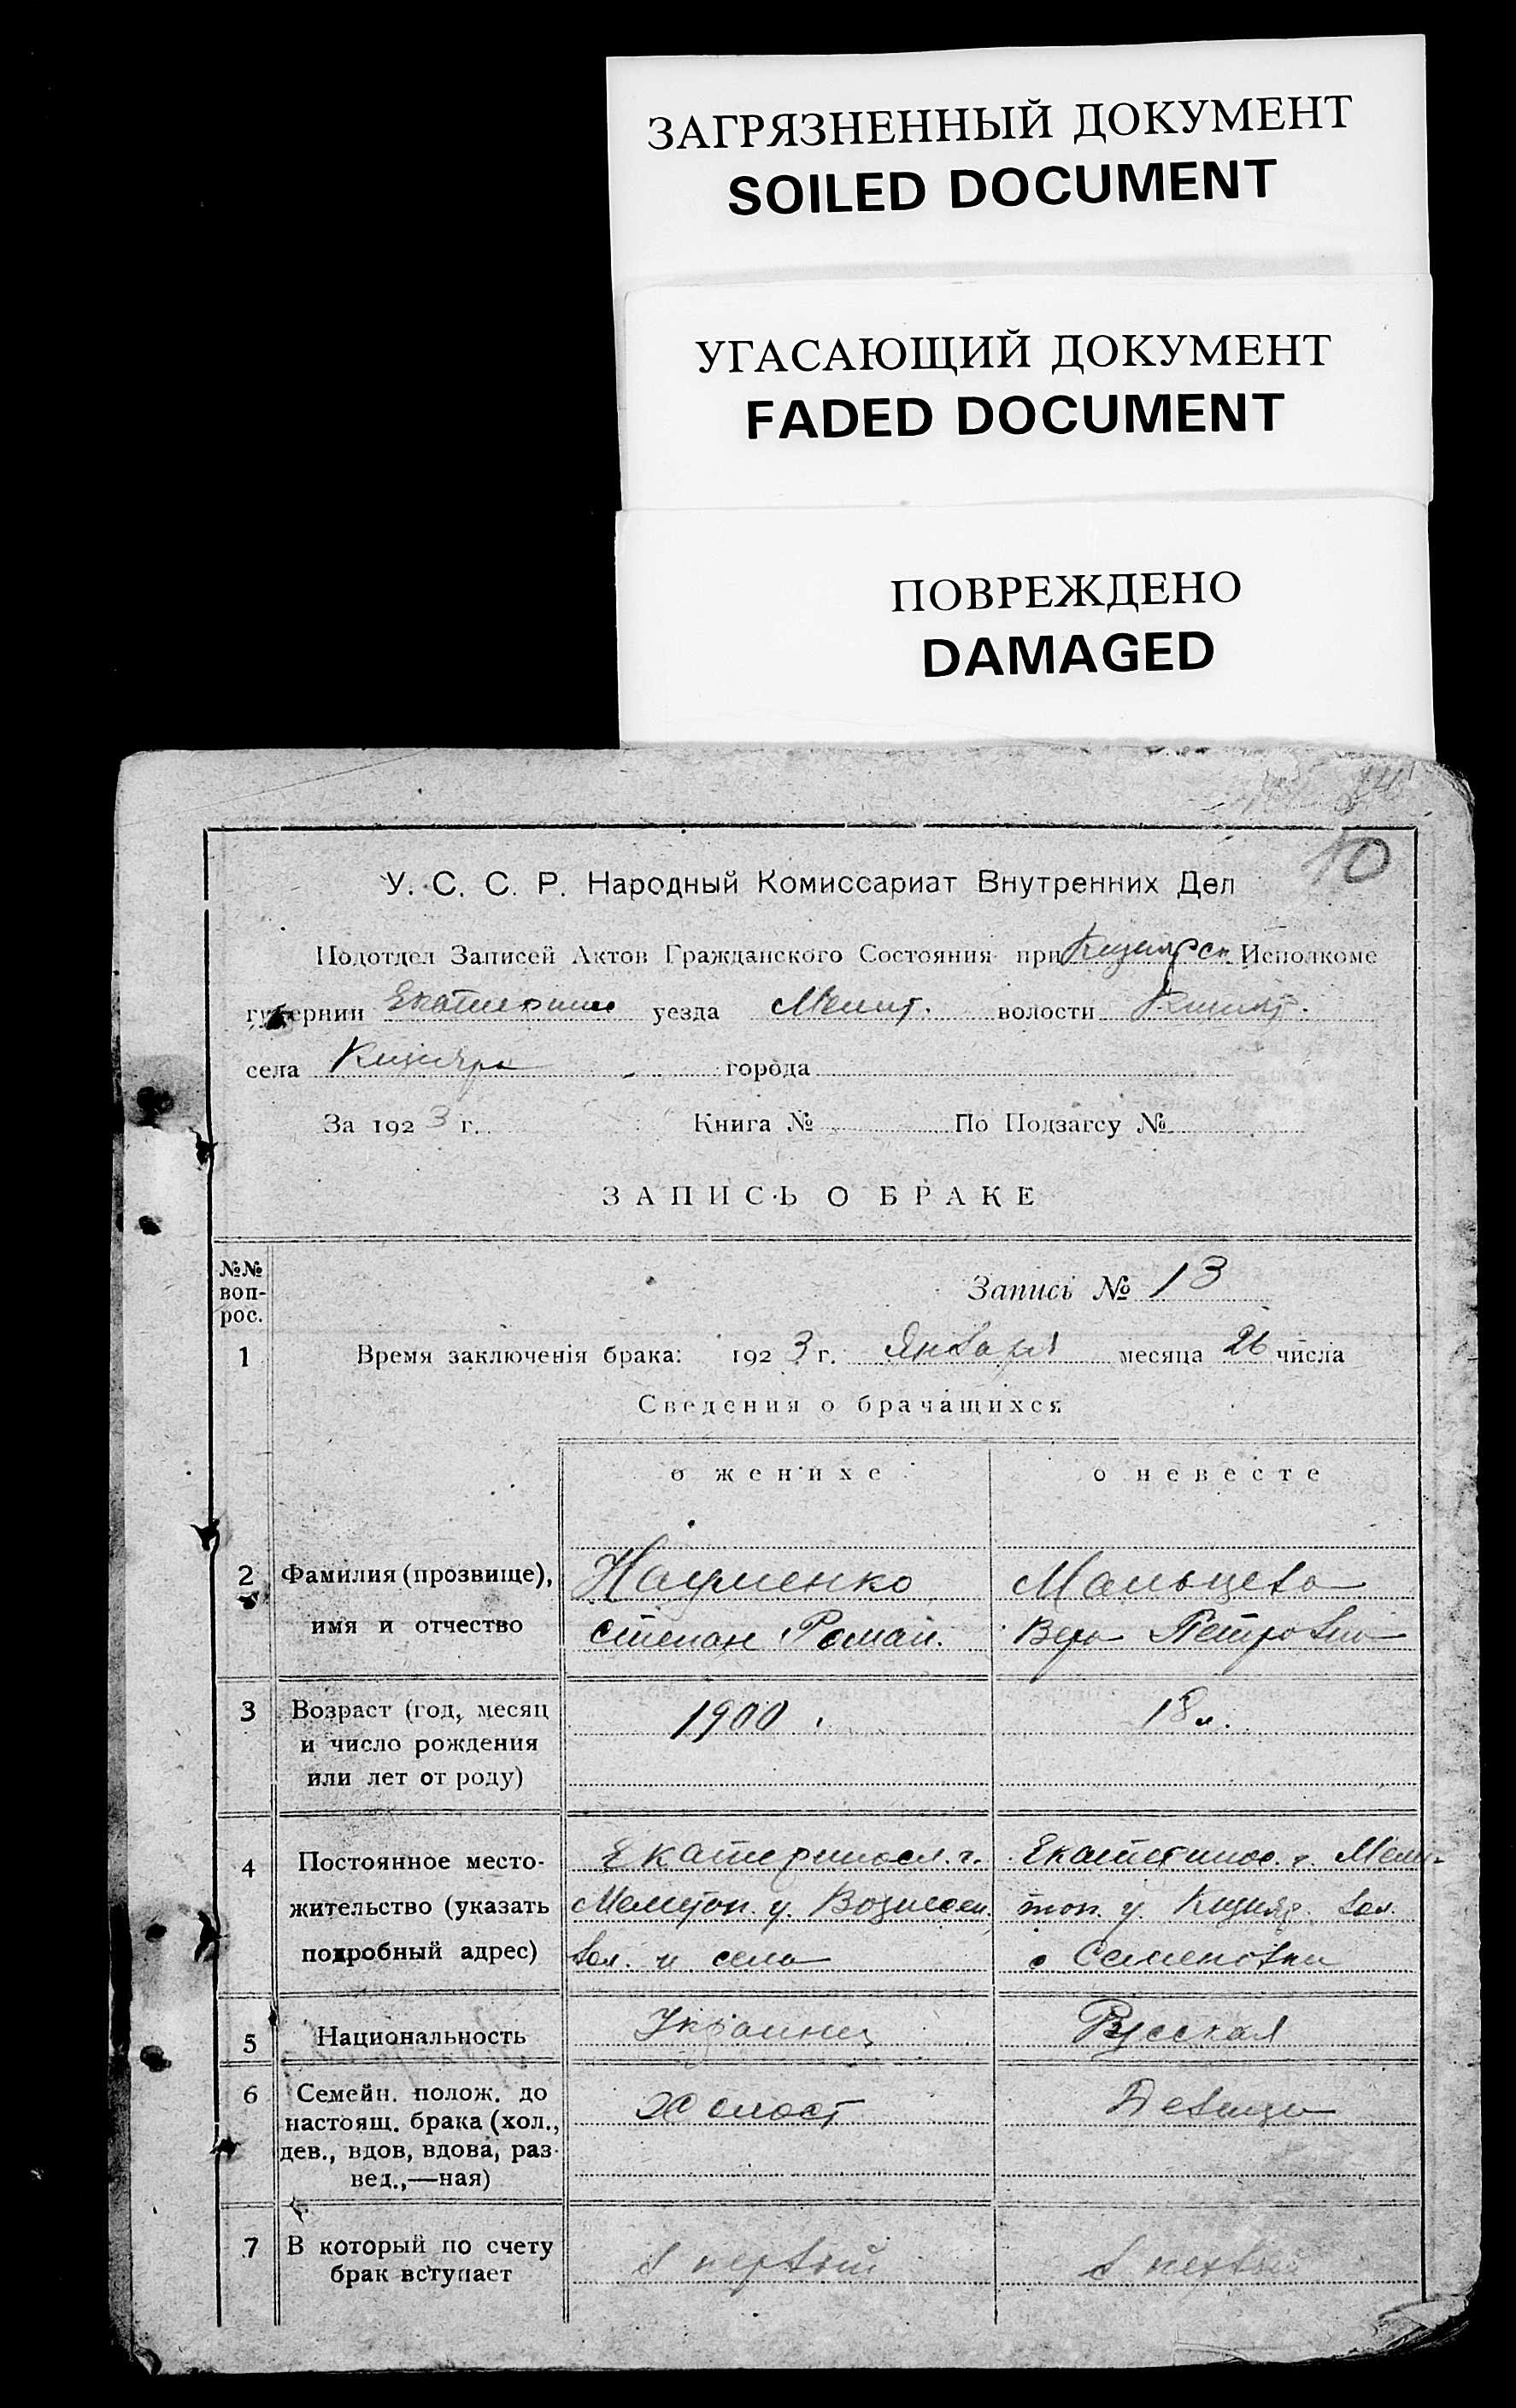 ЗАГРЯЗНЕННЫЙ ДОКУМЕНТ
SOILED DOCUMENT
УГАСАЮЩИЙ ДОКУМЕНТ
FADED DOCUMENT
ПОВРЕЖДЕНО
DAMAGED
10
У. С. С. Р. Народный Комиссариат Внутренних Дел
Подотдел Записей Актов Гражданского Состояния при Исполкоме
губернии уезда Мелит. волости
села города
За 1923 г. Книга № По Подзагсу №
ЗАПИСЬ О БРАКЕ
№№ воп-
рос.
Запись № 13
1 Время заключенія брака: 1923 г. Января месяца 26 числа
Сведения о брачащихся
о женихе о невесте
2 Фамилия (прозвище), Науменко Мальцева
имя и отчество Степан Роман. Вера Петровна
3 Возраст (год, месяц 1900 18 л.
и число рождения
или лет от роду)
4 Постоянное место- Екатериносл. г. Екатеринос. г. Мели-
жительство (указать Мелитоп. у. Вознесен. топ. у. Кизияр. вол.
подробный адрес) вол. и села с Семеновки
5 Национальность Украинец Русская
6 Семейн. полож. до Холост Девица
настоящ. брака (хол.,
дев., вдов, вдова, раз-
вед.,—ная)
7 В который по счету в первый в первый
брак вступает